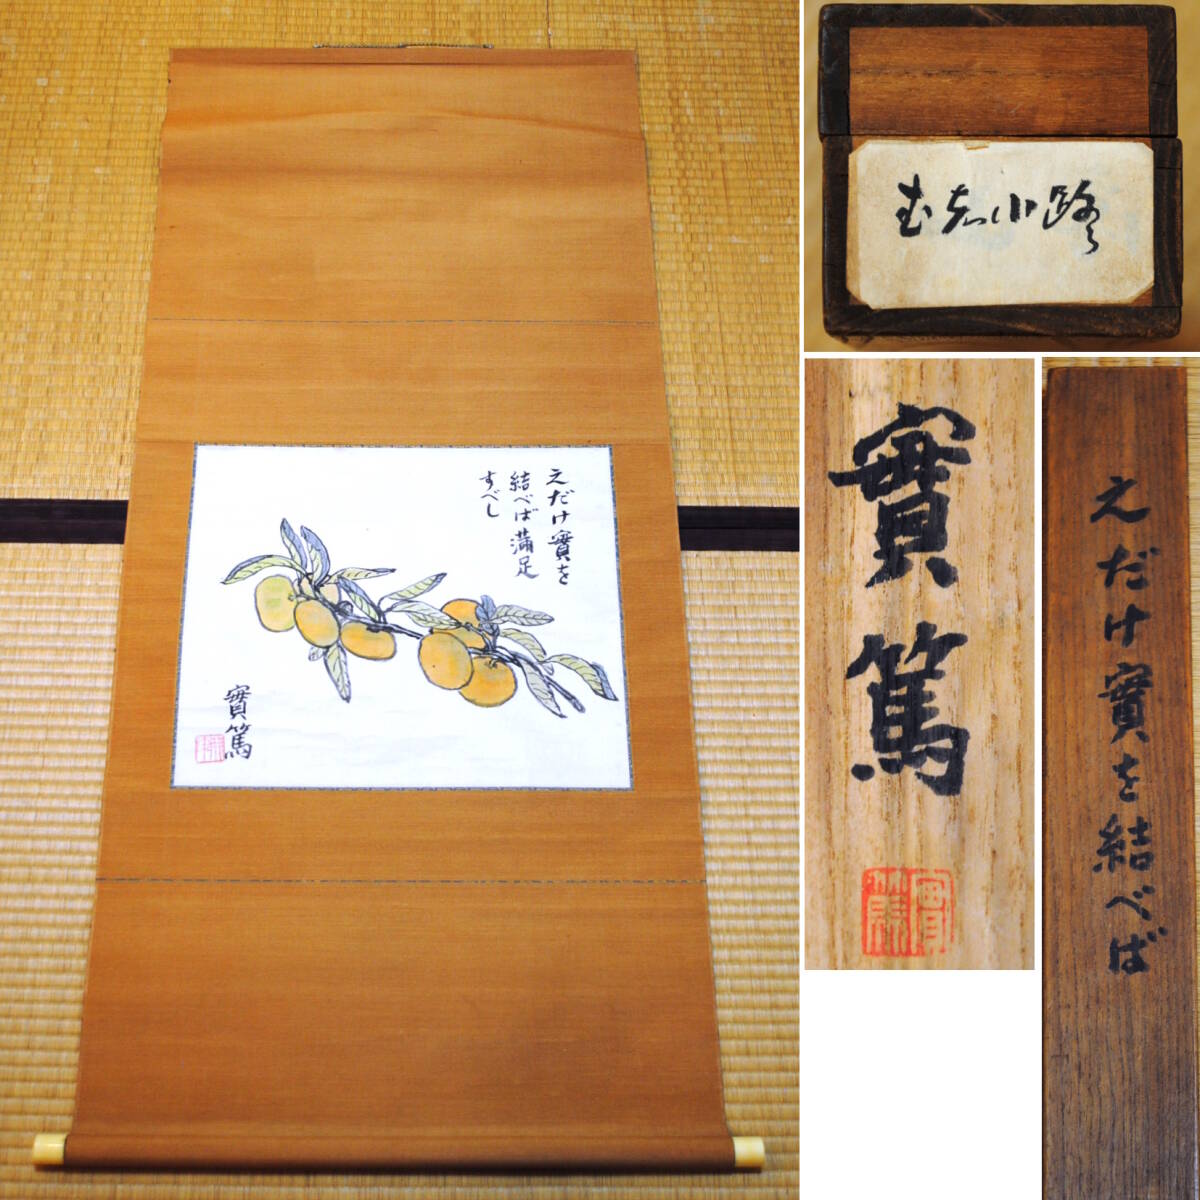 えだけ實を
結べば満足
すべし
實篤
むしゃ小路
實篤
實篤
えだけ實を結べば